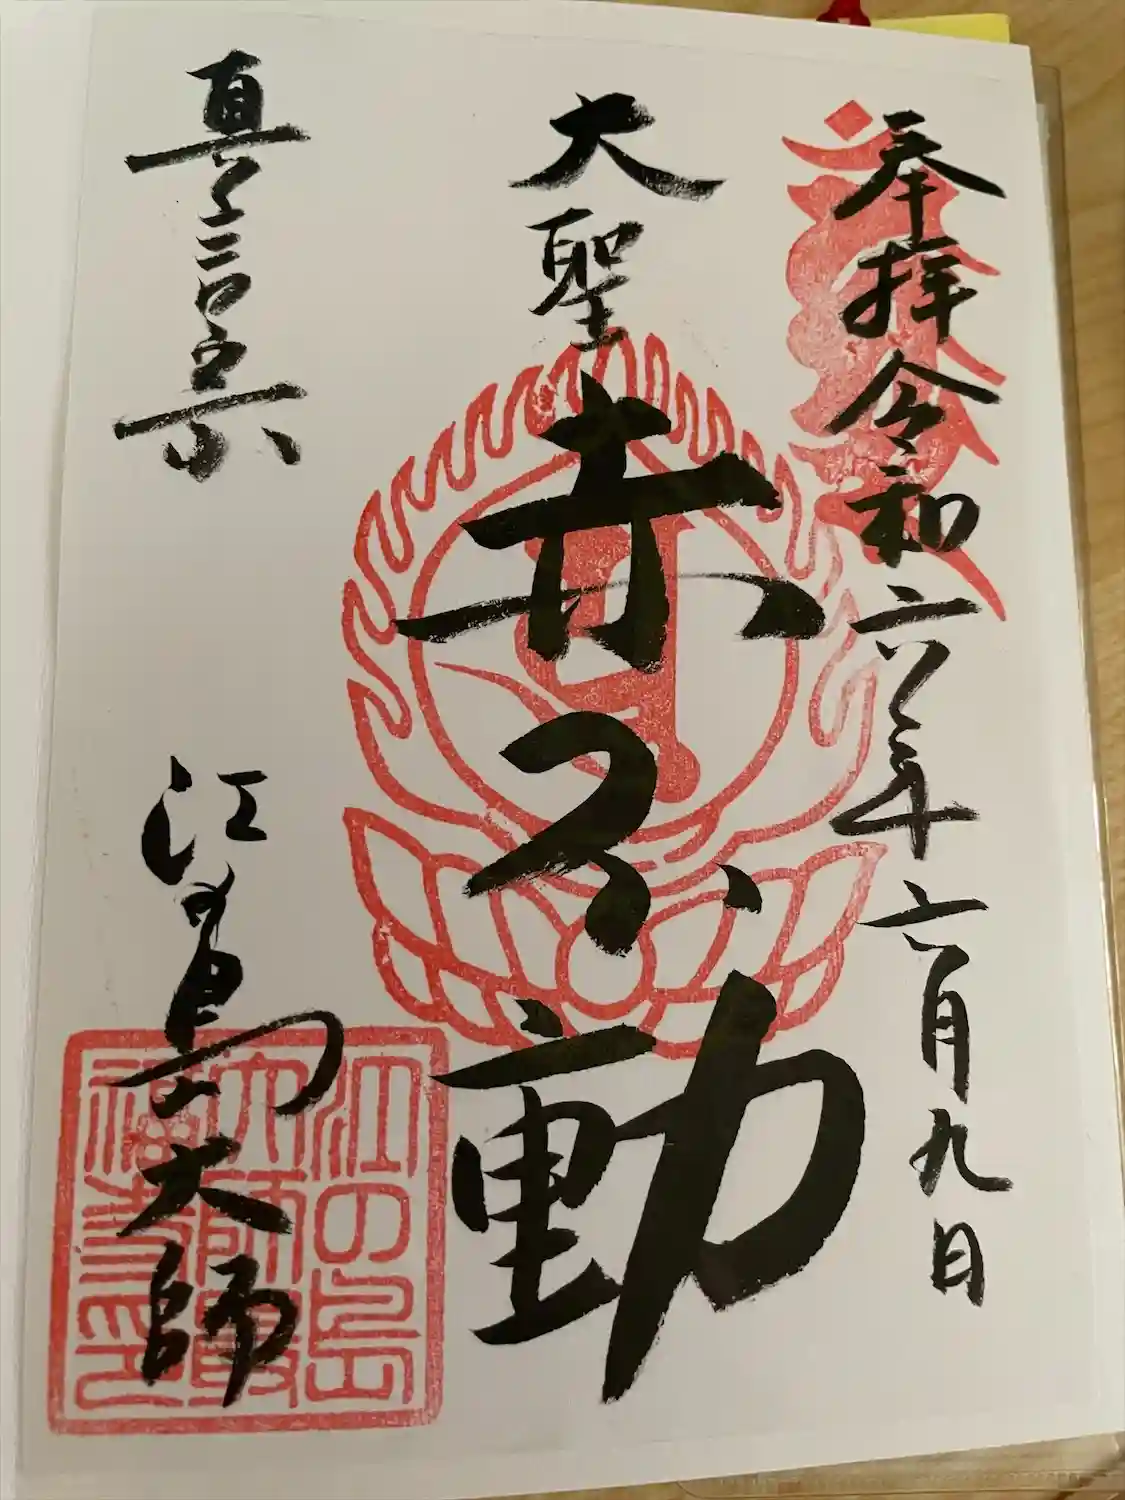 奉拝令和六年六月九日
大聖
赤不動
真言宗
江の島大師
江の島
大師最
福寺印